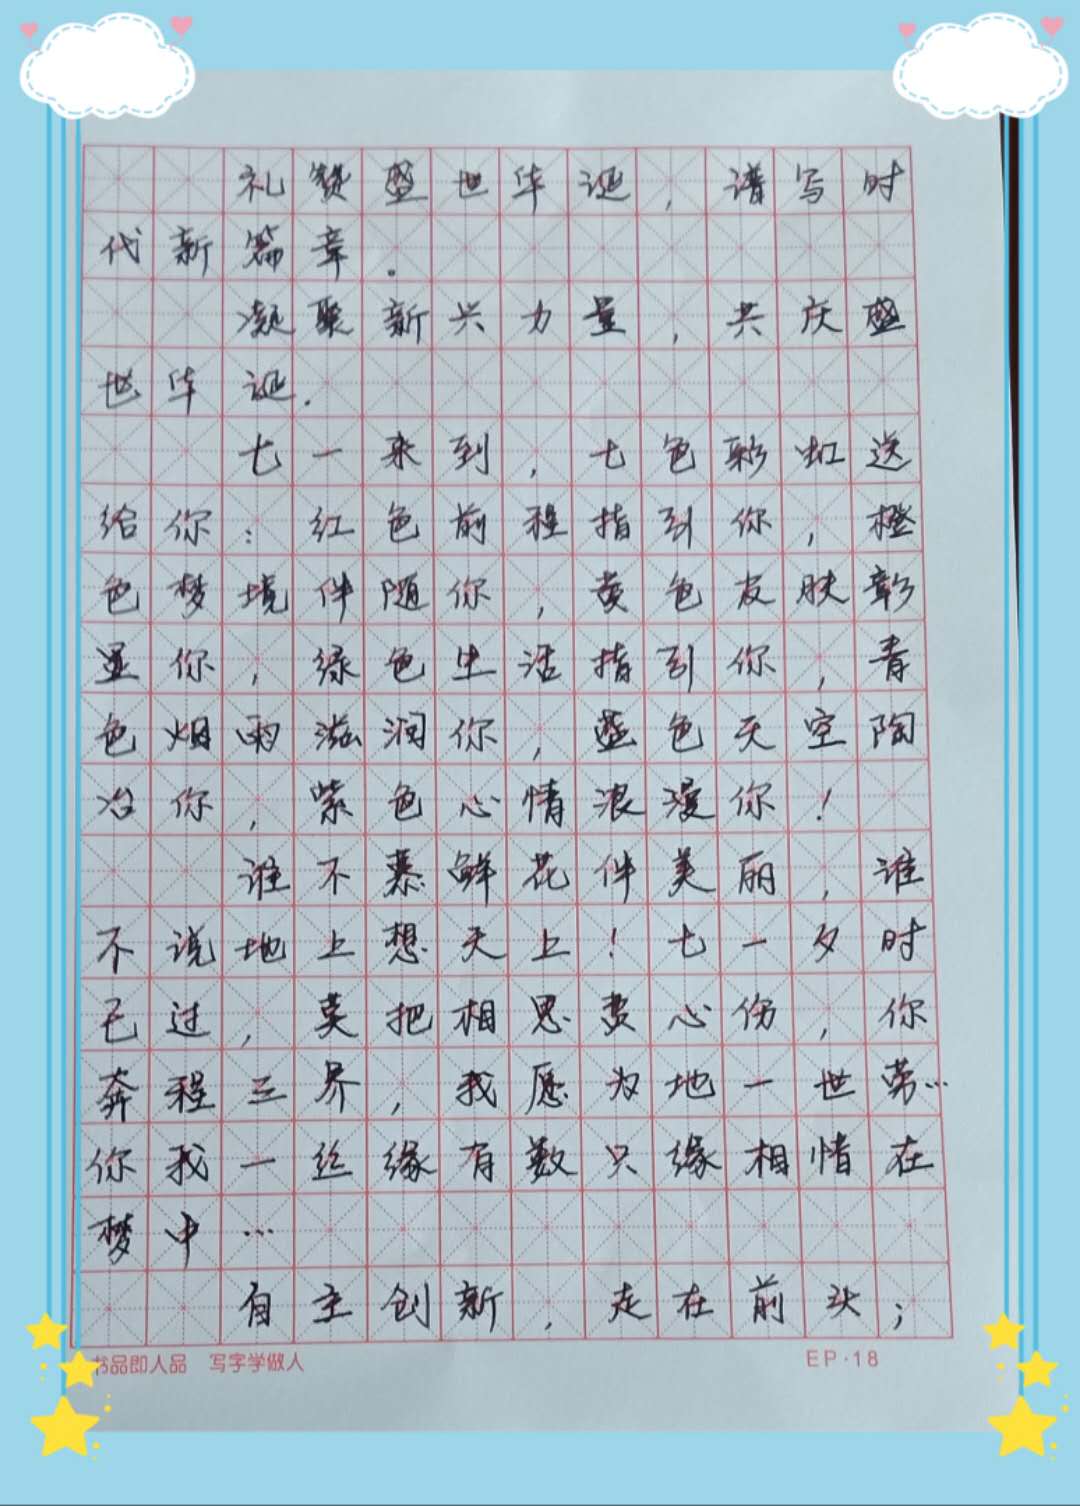 礼赞盛世华诞，谱写时
代新篇章.
凝聚新兴力量，共庆盛
世华诞.
七一来到，七色彩虹送
给你：红色前程指引你，橙
色梦境伴随你，黄色皮肤彰
显你，绿色生活指引你，青
色烟雨滋润你，蓝色天空陶
冶你，紫色心情浪漫你！
谁不慕鲜花伴美丽，谁
不说地上想天上！七一夕时
已过，莫把相思费心伤，你
奔程三界，我愿为地一世劳…
你我一丝缘有数只缘相惜在
梦中…
自主创新，走在前头；
书品即人品 写字学做人
EP·18